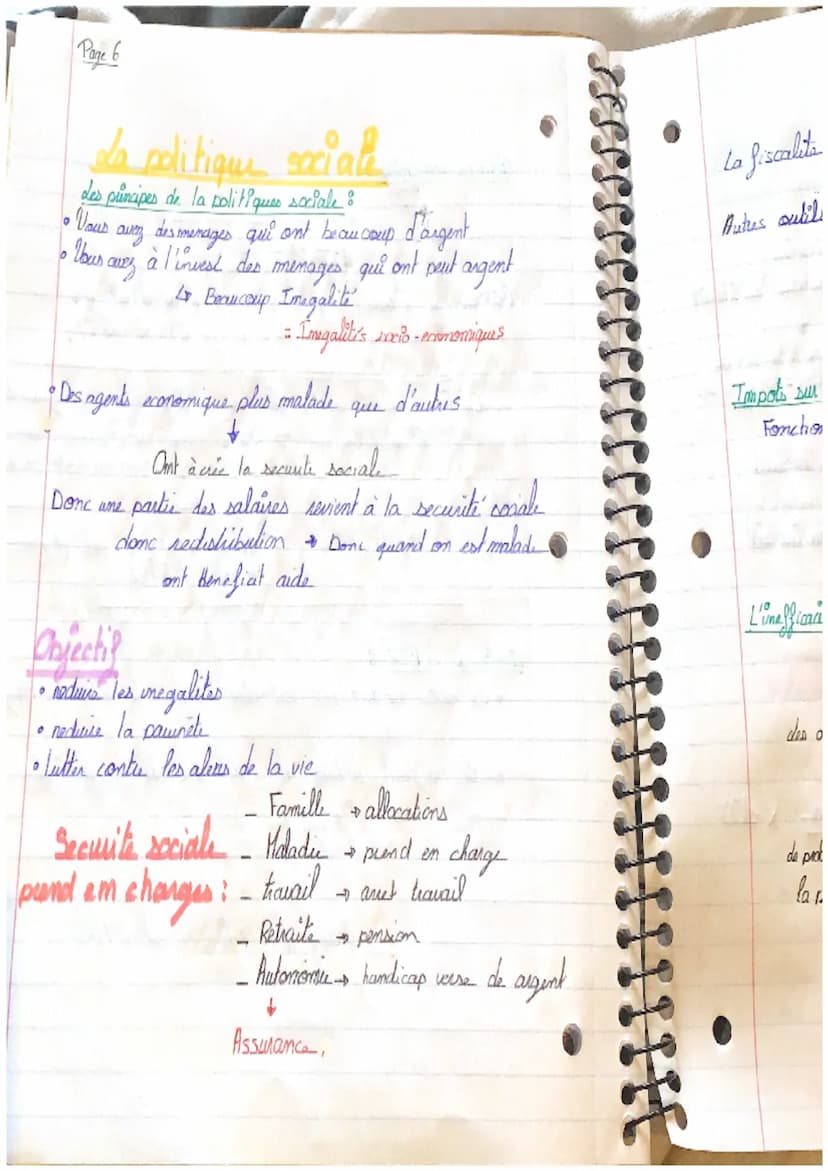 Page 6
La politique sociale
Les principes de la politiques sociale :
• Vous avez des menages qui ont beaucoup d'argent
• Vous avez à l'invest des menages qui ont peut argent
↳ Beaucoup Inegalité
= Inegalités socio-economiques
• Des agents economique plus malade que d'autres
↓
Ont à crée la securite sociale
Donc une partie des salaires revient à la securité sociale
donc redistribution → Donc quand on est malade
ont béneficit aide
Objectif
• reduire les inegalites
• reduire la pauvrete
• Lutter contre les aleas de la vie
- Famille → allocations
Securite sociale - Maladie → prend en charge
prend em charges : - travail → aret travail
- Retraite → pension
- Autonomie → handicap verse de argent
↓
Assurance,
La fiscalite
Autres outils
Impots sur
Fonction
L'inefficaci
des o
de prob
la p